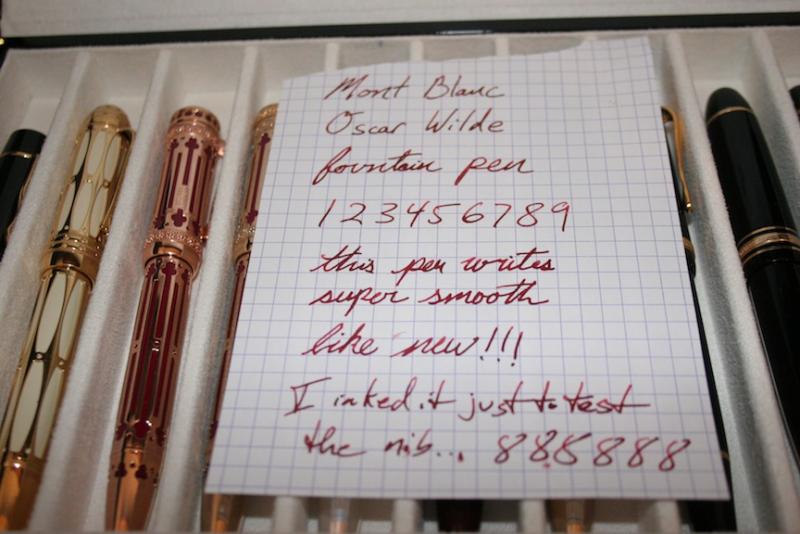 Mont Blanc
Oscar Wilde
fountain pen
123456789
this pen writes
super smooth
like new!!!
I inked it just to test
the nib... 888888